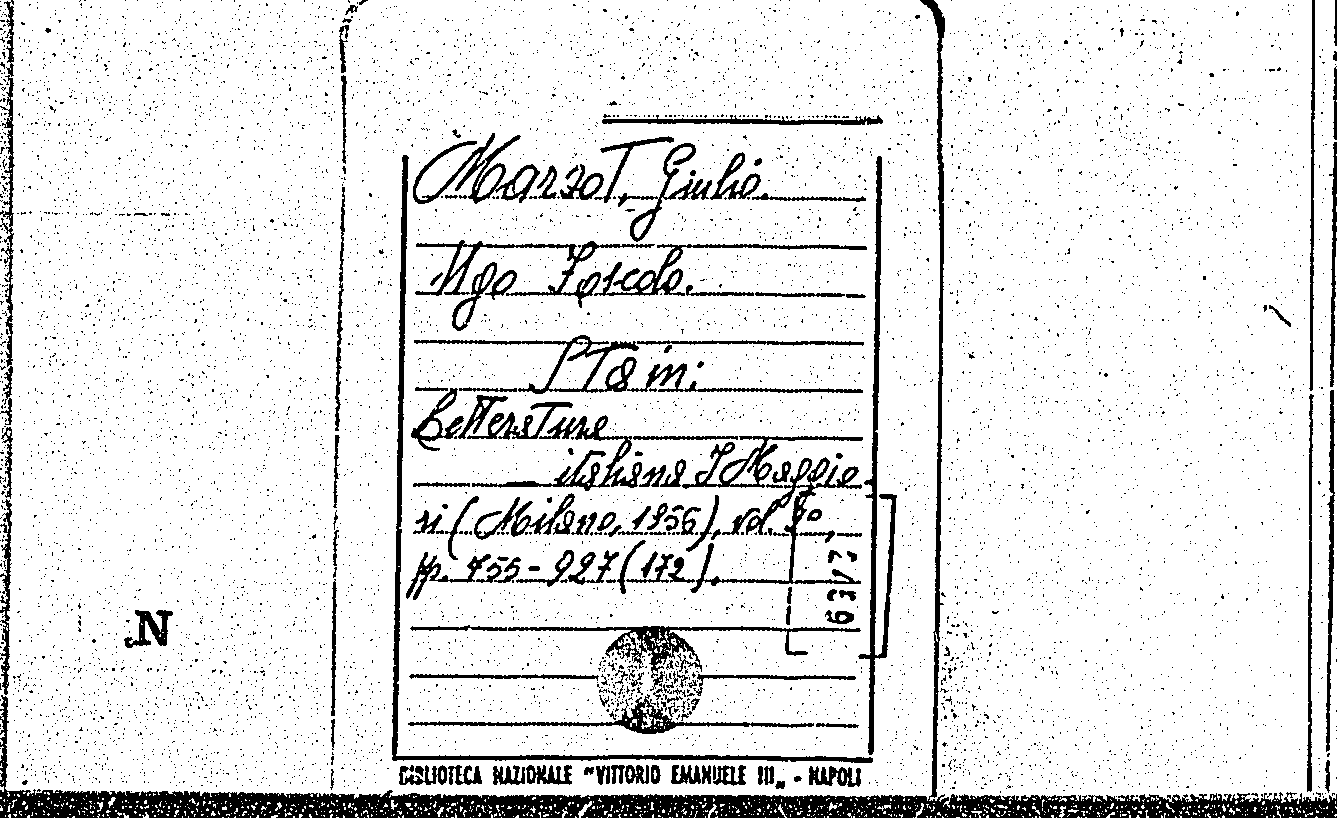 Marzot, Giulio.
Ugo Foscolo.
Sta in:
Letteratura
_ italiana I Maggio
ri (Milano, 1956), vol. 2o,
pp. 755-927 (172).
N
BIBLIOTECA NAZIONALE "VITTORIO EMANUELE III„ - NAPOLI